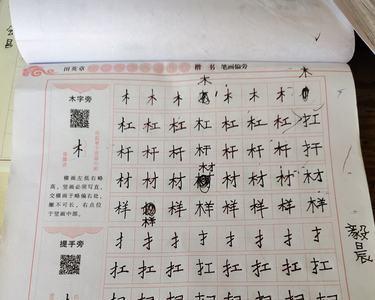 田英章 楷书 笔画偏旁
木
木
木字旁
木 木 木 木 木 木 木
木
杠 杠 杠 杠 杠 杠 杠 扛
杆 杆 杆 杆 杆 杆 杆 扞
横画左低右略
高，竖画必须写直，
交横画于略偏右处，
撇不可长，右点位
于竖画中部。
材
材 材 材 材 材 材 材
样 样 样 样 样 样 样
样
毅晨
提手旁
扌 扌 扌 扌 扌 扌 扌 扌
扛 扛 扛 扛 扛 扛 扛 扛